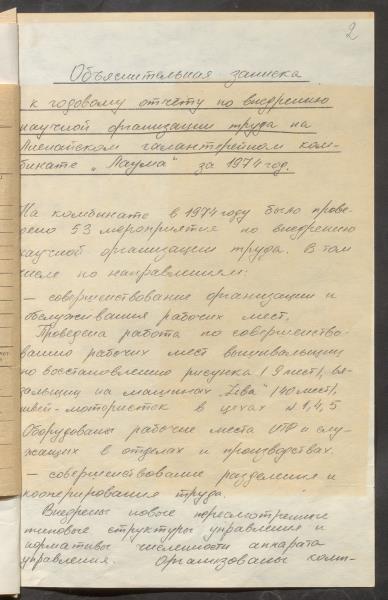 2
Объяснительная записка
к годовому отчёту по внедрению
научной организации труда на
Лиепайском галантерейном ком-
бинате „Лаума“ за 1974 год.
На комбинате в 1974 году было прове-
дено 53 мероприятия по внедрению
научной организации труда. В том
числе по направлениям:
— совершенствование организации и
обслуживания рабочих мест.
Проведена работа по совершенство-
ванию рабочих мест вышивальщиц
по восстановлению рисунка (9 мест), вя-
зальщиц на машинах (40 мест),
швей-мотористок в цехах N 1, 4, 5
Оборудованы рабочие места ИТР и слу-
жащих в отделах и производствах.
— совершенствование разделения и
кооперирования труда.
Внедрены новые пересмотренные
типовые структуры управления и
нормативы численности аппарата
управления. Организованы комп-